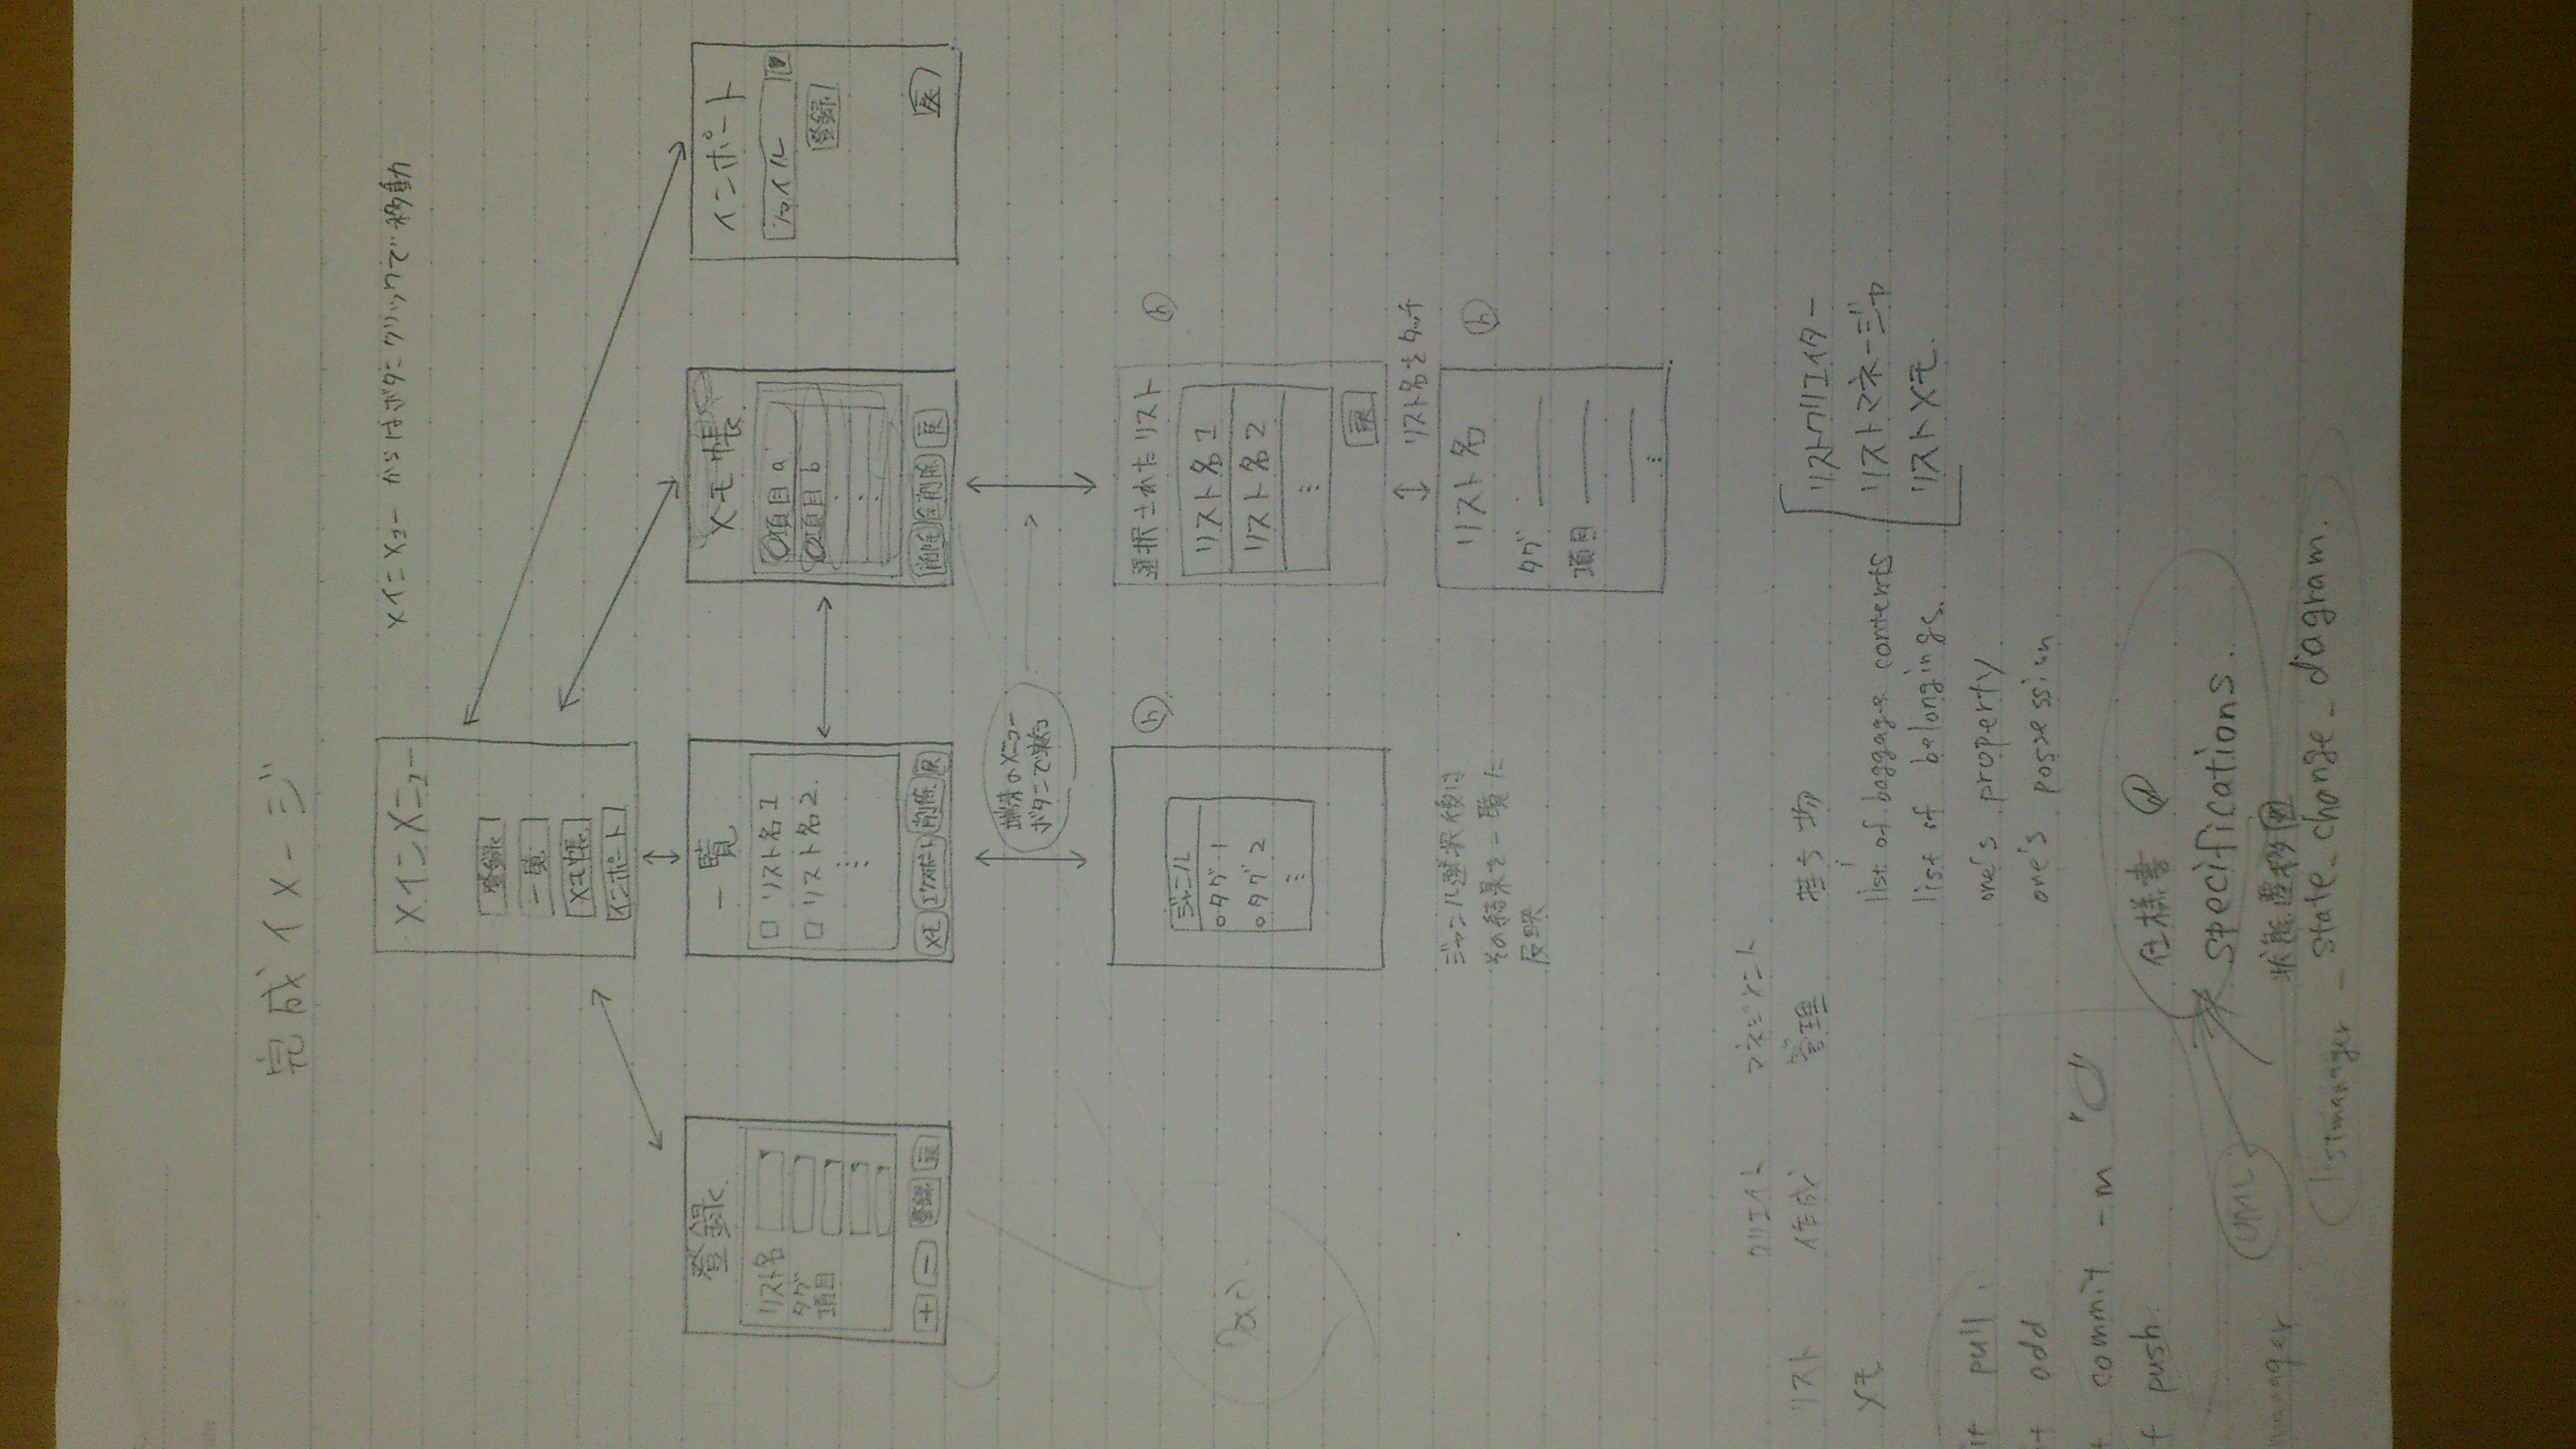 完成イメージ
メインメニュー
メインメニューからはボタンクリックで移動
登録
一覧
メモ帳
インポート
登録
リスト名
タグ
項目
+ - 登録 戻
一覧
□ リスト名1
□ リスト名2
メモ エクスポート 削除 戻
メモ帳
項目 a
項目 b
削除 全削除 戻
インポート
ファイル ▼
登録
戻
端末のメニュー
ボタンで実行
ジャンル
○タグ1
○タグ2
h
選択されたリスト
h
リスト名1
リスト名2
戻
リスト名をタッチ
リスト名
h
タグ
項目
ジャンル選択後は
その結果を一覧に
反映
クリエイト マネジメント
リスト 作成 管理 持ち物
メモ
list of baggage contents
list of belongings.
one's property
one's possession
リストクリエイター
リストマネージャ
リストメモ.
it pull
t add
t commit -m "○"
t push.
仕様書
specifications.
UML
manager
状態遷移図
listmanager _ state_change_diagram.